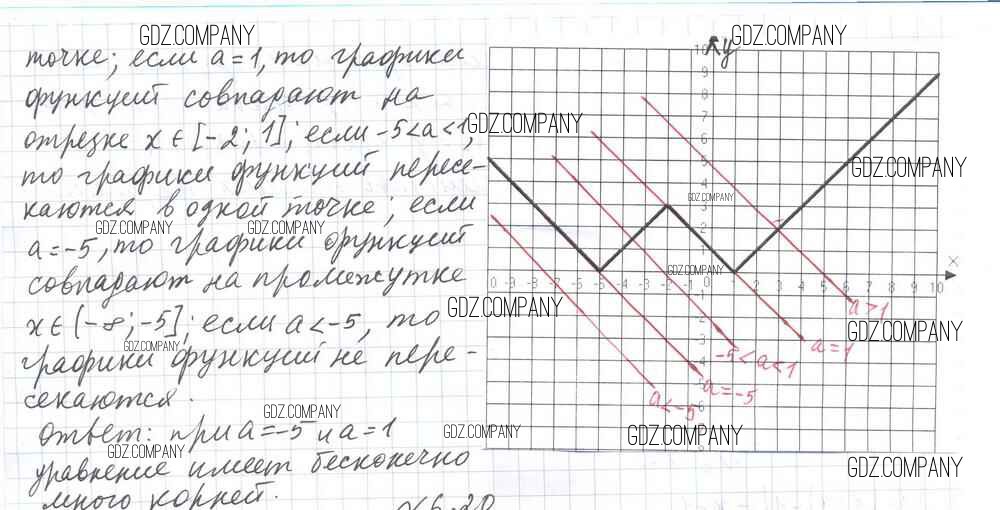 GDZ.COMPANY GDZ.COMPANY
точке; если a=1, то графики
функций совпадают на
отрезке x ∈ [-2; 1]; если -5<a<1,
то графики функций пересе-
каются в одной точке; если
a=-5, то графики функций
совпадают на промежутке
x ∈ (-∞; -5]; если a<-5, то
графики функций не пере-
секаются.
Ответ: при a=-5 и a=1
уравнение имеет бесконечно
много корней.
GDZ.COMPANY
GDZ.COMPANY
GDZ.COMPANY
GDZ.COMPANY GDZ.COMPANY
GDZ.COMPANY
GDZ.COMPANY
GDZ.COMPANY
GDZ.COMPANY
GDZ.COMPANY
GDZ.COMPANY GDZ.COMPANY
GDZ.COMPANY
GDZ.COMPANY
y
x
10
9
8
7
6
5
4
3
2
1
0 -9 -8 -7 -6 -5 -4 -3 -2 -1 0 1 2 3 4 5 6 7 8 9 10
a>1
a=1
-5<a<1
a=-5
a<-5